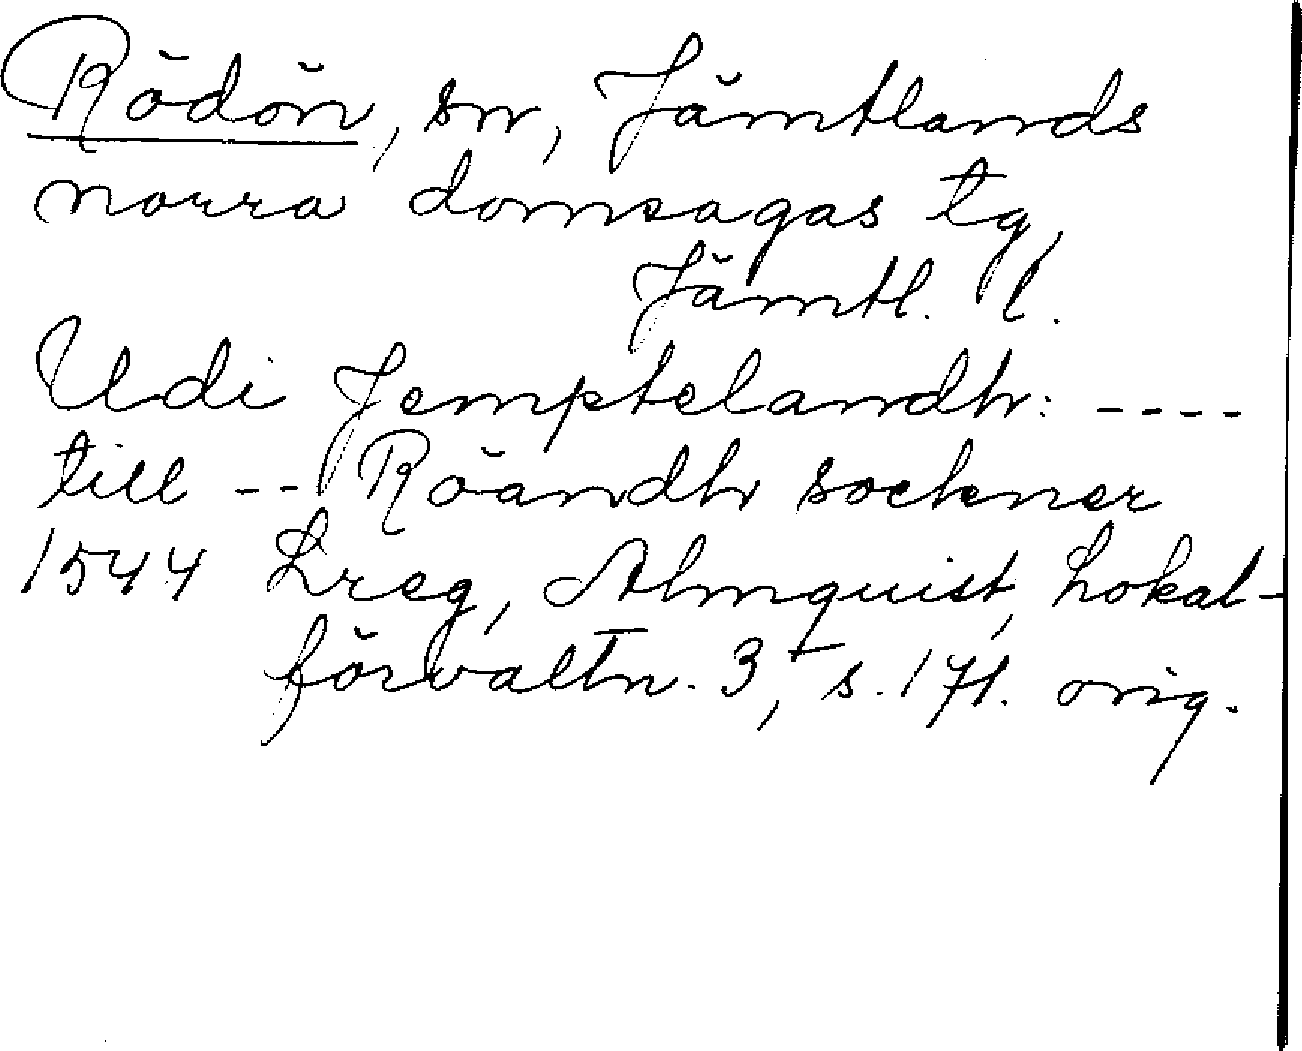 Rödön, sn, Jämtlands
norra domsagas tg,
Jämtl. l.
Udi Jemptelandh: ----
till -- Röandh sockner
1544 Lreg, Almquist, Lokal-
förvaltn. 3, s. 171. orig.